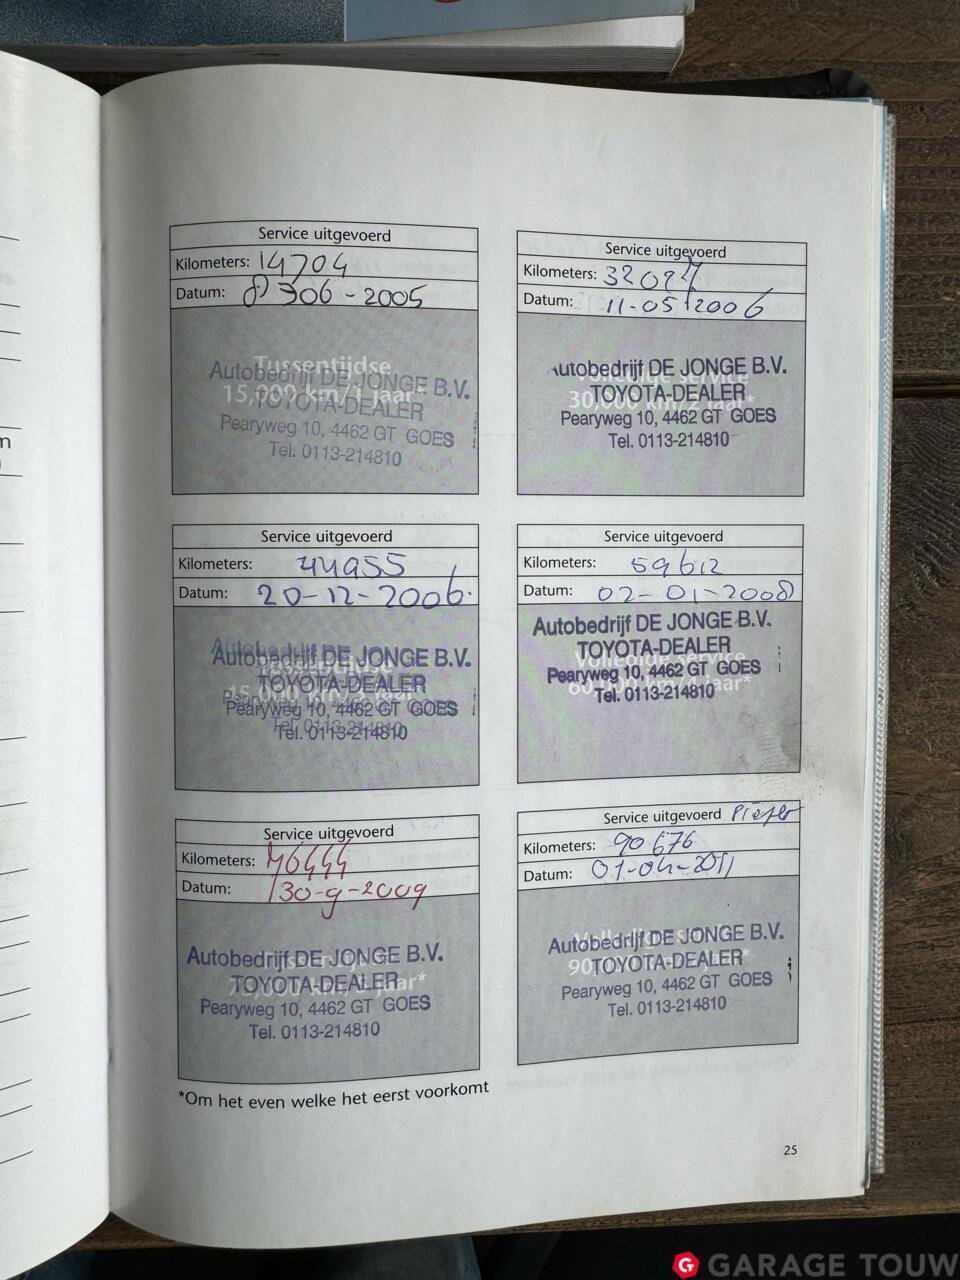 Service uitgevoerd
Kilometers: 14704
Datum: 8 306-2005
Tussentijdse
15,000 km/1 jaar*
Autobedrijf DE JONGE B.V.
TOYOTA-DEALER
Pearyweg 10, 4462 GT GOES
Tel. 0113-214810
Service uitgevoerd
Kilometers:
Datum: 11-05-2006
Volledige service
30,000 km/2 jaar*
Autobedrijf DE JONGE B.V.
TOYOTA-DEALER
Pearyweg 10, 4462 GT GOES
Tel. 0113-214810
Service uitgevoerd
Kilometers: 44955
Datum: 20-12-2006
Autobedrijf DE JONGE B.V.
TOYOTA-DEALER
Pearyweg 10, 4462 GT GOES
Tel. 0113-214810
Service uitgevoerd
Kilometers: 59612
Datum: 02-01-2008
Volledige service
60,000 km/4 jaar*
Autobedrijf DE JONGE B.V.
TOYOTA-DEALER
Pearyweg 10, 4462 GT GOES
Tel. 0113-214810
Service uitgevoerd
Kilometers: 76444
Datum: 30-9-2009
Autobedrijf DE JONGE B.V.
TOYOTA-DEALER
Pearyweg 10, 4462 GT GOES
Tel. 0113-214810
Service uitgevoerd
Kilometers: 90676
Datum: 01-04-2011
Volledige service
Autobedrijf DE JONGE B.V.
TOYOTA-DEALER
Pearyweg 10, 4462 GT GOES
Tel. 0113-214810
*Om het even welke het eerst voorkomt
25
GARAGE TOUW